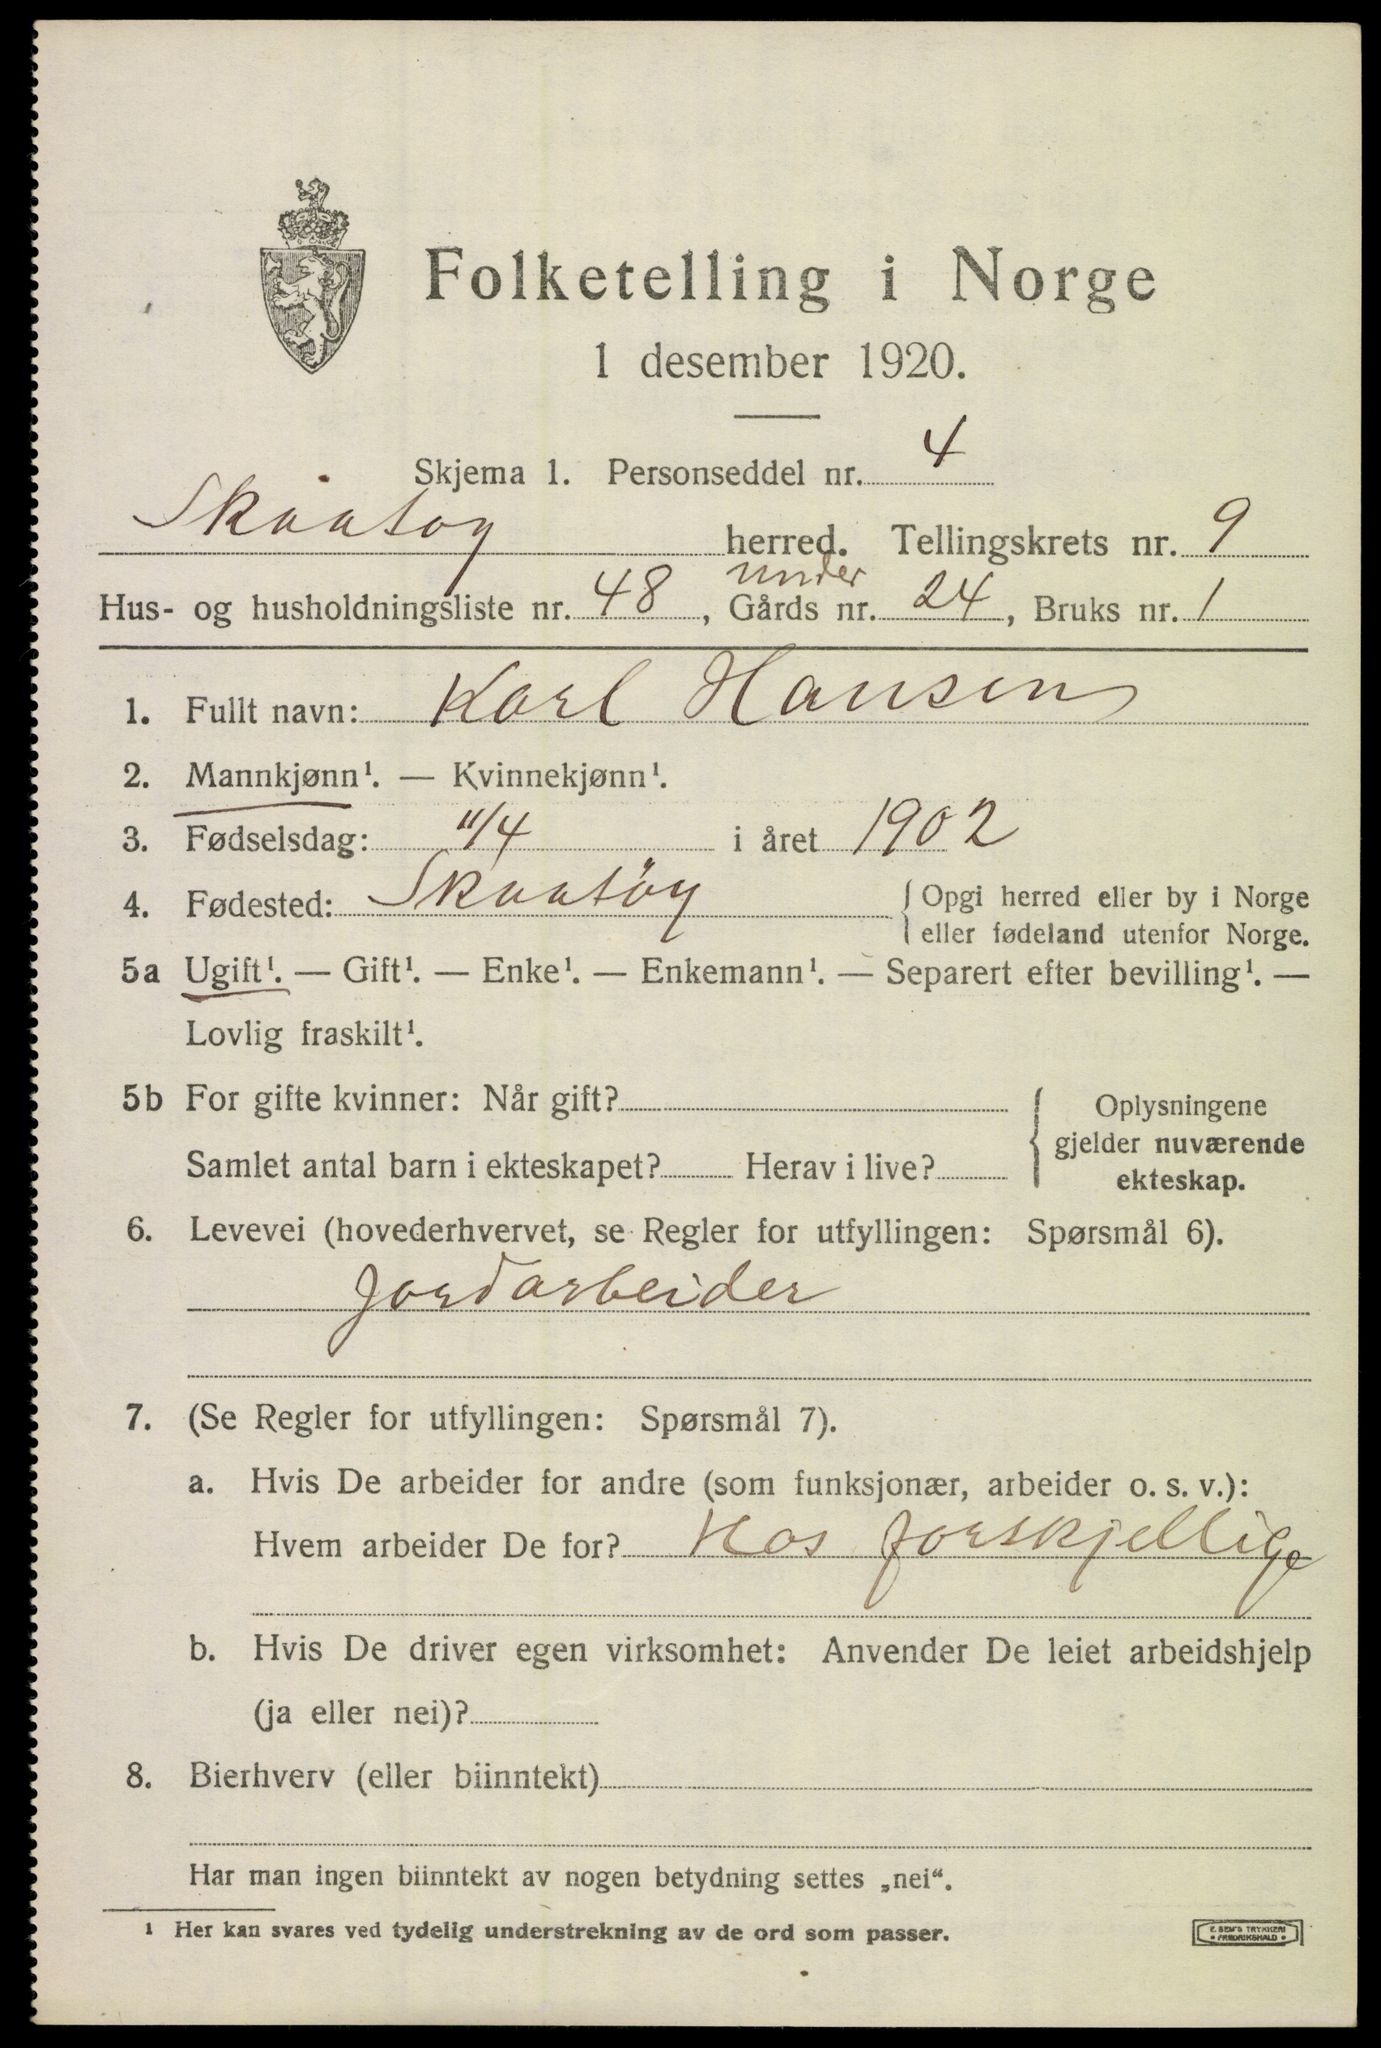 Folketelling i Norge
1 desember 1920.
Skjema 1. Personseddel nr. 4
Skaatøy herred. Tellingskrets nr. 9
under
Hus- og husholdningsliste nr. 48, Gårds nr. 24, Bruks nr. 1
1. Fullt navn: Karl Hansen
2. Mannkjønn¹. — Kvinnekjønn¹.
3. Fødselsdag: 11/4 i året 1902
4. Fødested: Skaatöy { Opgi herred eller by i Norge
eller fødeland utenfor Norge.
5a Ugift¹. — Gift¹. — Enke¹. — Enkemann¹. — Separert efter bevilling¹. —
Lovlig fraskilt¹.
5b For gifte kvinner: Når gift?
Samlet antal barn i ekteskapet? Herav i live?
{ Oplysningene
gjelder nuværende
ekteskap.
6. Levevei (hovederhvervet, se Regler for utfyllingen: Spørsmål 6).
Jordarbeider
7. (Se Regler for utfyllingen: Spørsmål 7).
a. Hvis De arbeider for andre (som funksjonær, arbeider o. s. v.):
Hvem arbeider De for? Hos forskjellige
b. Hvis De driver egen virksomhet: Anvender De leiet arbeidshjelp
(ja eller nei)?
8. Bierhverv (eller biinntekt)
Har man ingen biinntekt av nogen betydning settes „nei“.
¹ Her kan svares ved tydelig understrekning av de ord som passer.
E. SEM'S TRYKKERI
• FREDRIKSHALD •